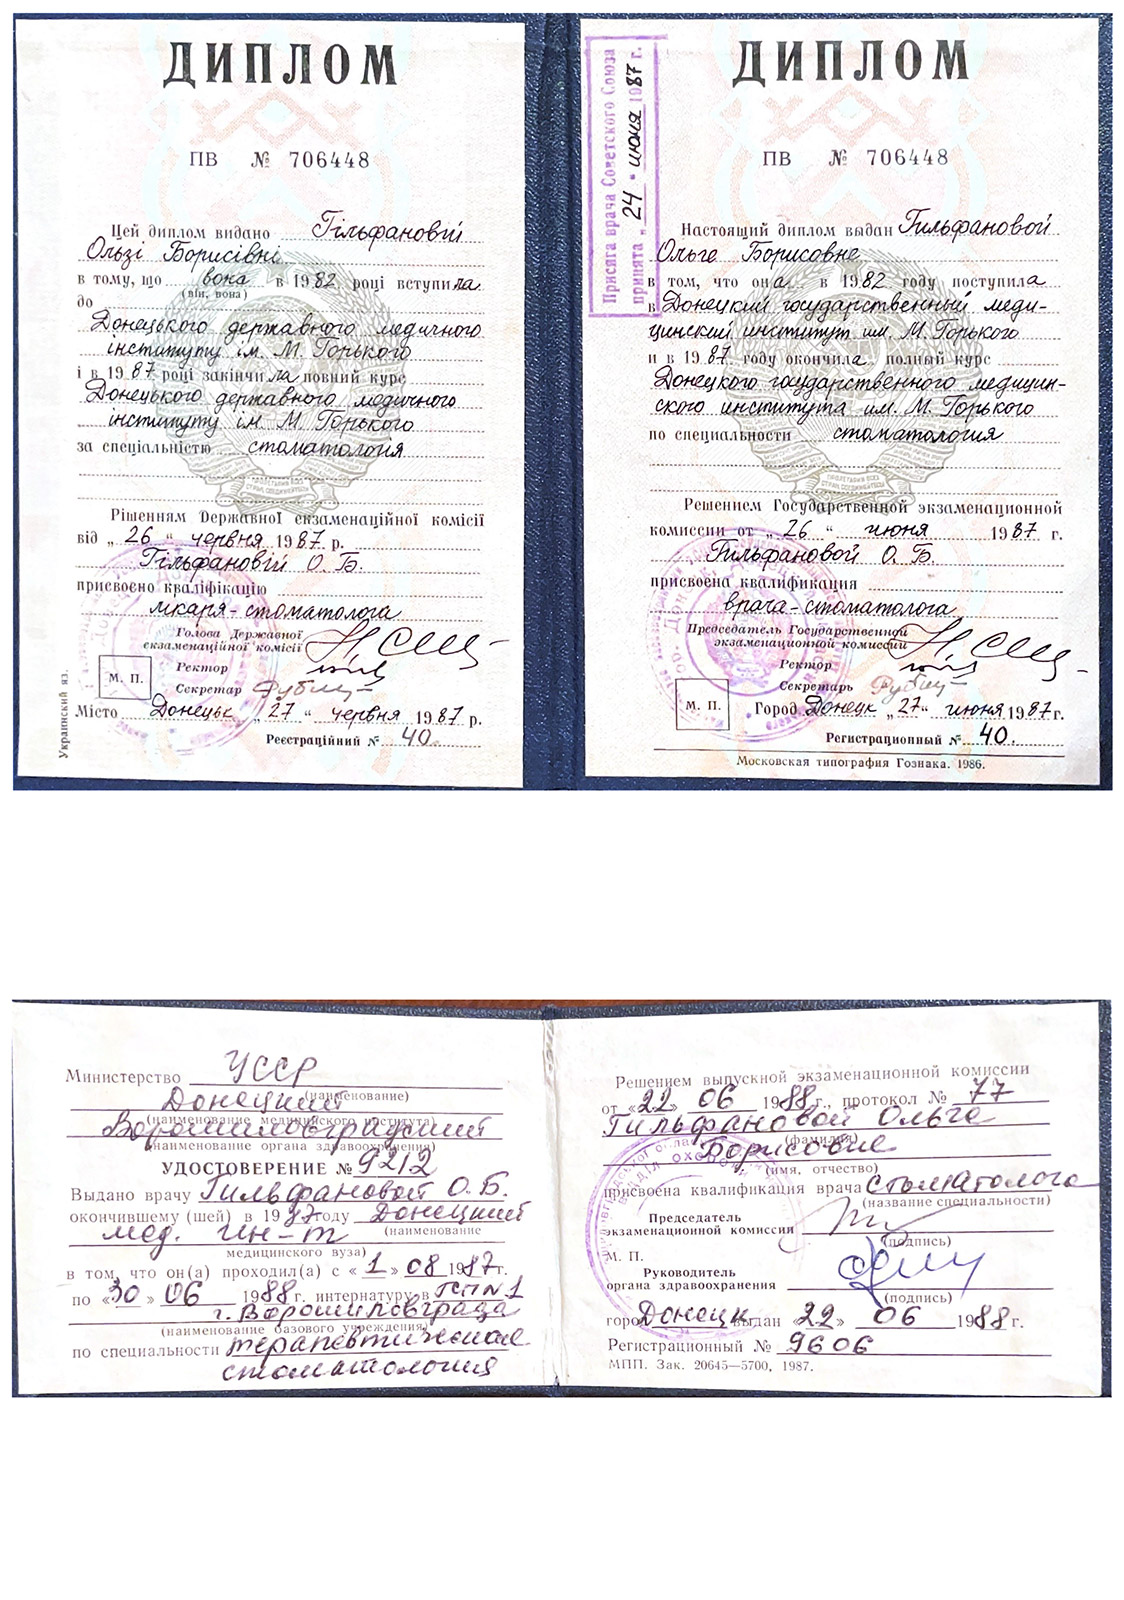 ДИПЛОМ
ПВ № 706448
Цей диплом видано Гільфановій
Ользі Борисівні
в тому, що вона в 1982 році вступила
(він, вона)
до
Донецького державного медичного
інституту ім. М. Горького
і в 1987 році закінчила повний курс
Донецького державного медичного
інституту ім. М. Горького
за спеціальністю стоматологія
Рішенням Державної екзаменаційної комісії
від „26“ червня 1987 р.
Гільфановій О. Б.
присвоєно кваліфікацію
лікаря-стоматолога
Голова Державної
екзаменаційної комісії
Ректор
М. П.
Секретар
Місто Донецьк „27“ червня 1987 р.
Реєстраційний № 40.
Украинский яз.
ДИПЛОМ
Присяга врача Советского Союза
принята „24“ июня 1987 г.
ПВ № 706448
Настоящий диплом выдан Гильфановой
Ольге Борисовне
в том, что она в 1982 году поступила
в Донецкий государственный меди-
цинский институт им. М. Горького
и в 1987 году окончила полный курс
Донецкого государственного медицин-
ского института им. М. Горького
по специальности стоматология
Решением Государственной экзаменационной
комиссии от „26“ июня 1987 г.
Гильфановой О. Б.
присвоена квалификация
врача-стоматолога
Председатель Государственной
экзаменационной комиссии
Ректор
Секретарь
М. П.
Город Донецк „27“ июня 1987 г.
Регистрационный № 40.
Московская типография Гознака. 1986.
Министерство УССР
(наименование)
Донецкий
(наименование медицинского института)
Ворошиловградский
(наименование органа здравоохранения)
УДОСТОВЕРЕНИЕ № 9212
Выдано врачу Гильфановой О. Б.
окончившему (шей) в 1987 году Донецкий
мед. ин-т (наименование
медицинского вуза)
в том, что он(а) проходил(а) с «1» 08 1987 г.
по «30» 06 1988 г. интернатуру в ГСП №1
г. Ворошиловграда
(наименование базового учреждения)
по специальности терапевтическая
стоматология
Решением выпускной экзаменационной комиссии
от «22» 06 1988 г., протокол № 77
Гильфановой Ольге
(фамилия)
Борисовне
(имя, отчество)
присвоена квалификация врача стоматолога
(название специальности)
Председатель
экзаменационной комиссии
(подпись)
М. П.
Руководитель
органа здравоохранения
(подпись)
город Донецк выдан «22» 06 1988 г.
Регистрационный № 9606
МПП. Зак. 20645—5700, 1987.